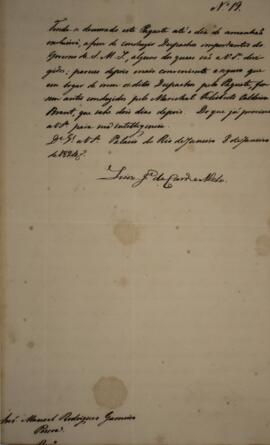 Nº 19.
Tendo-se demorado este Paquete até o dia de amanhã
exclusive, a fim de conduzir Despachos importantes do
Governo de S. M. I., alguns dos quaes vão a V. Sª. diri-
gidos; pareceu depois mais conveniente e seguro que
em logar de irem os ditos Despachos pelo Paquete, fos-
sem antes conduzidos pelo Marechal Felisberto Caldeira
Brant, que sahe dois dias depois. Do que já previno
a V. Sª. para sua intelligencia.
Ds. Gde. a V. Sª. Palacio do Rio de Janeiro 8 de Janeiro
de 1824.
Luiz Jé. de Carvº. e Mello.
José Manoel Rodrigues Gameiro
Pessoa